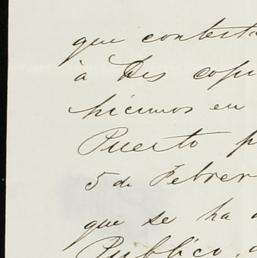 que contest
à Des copi
hicimos en
Puerto p
5 de Febrer
que se ha
Publico,